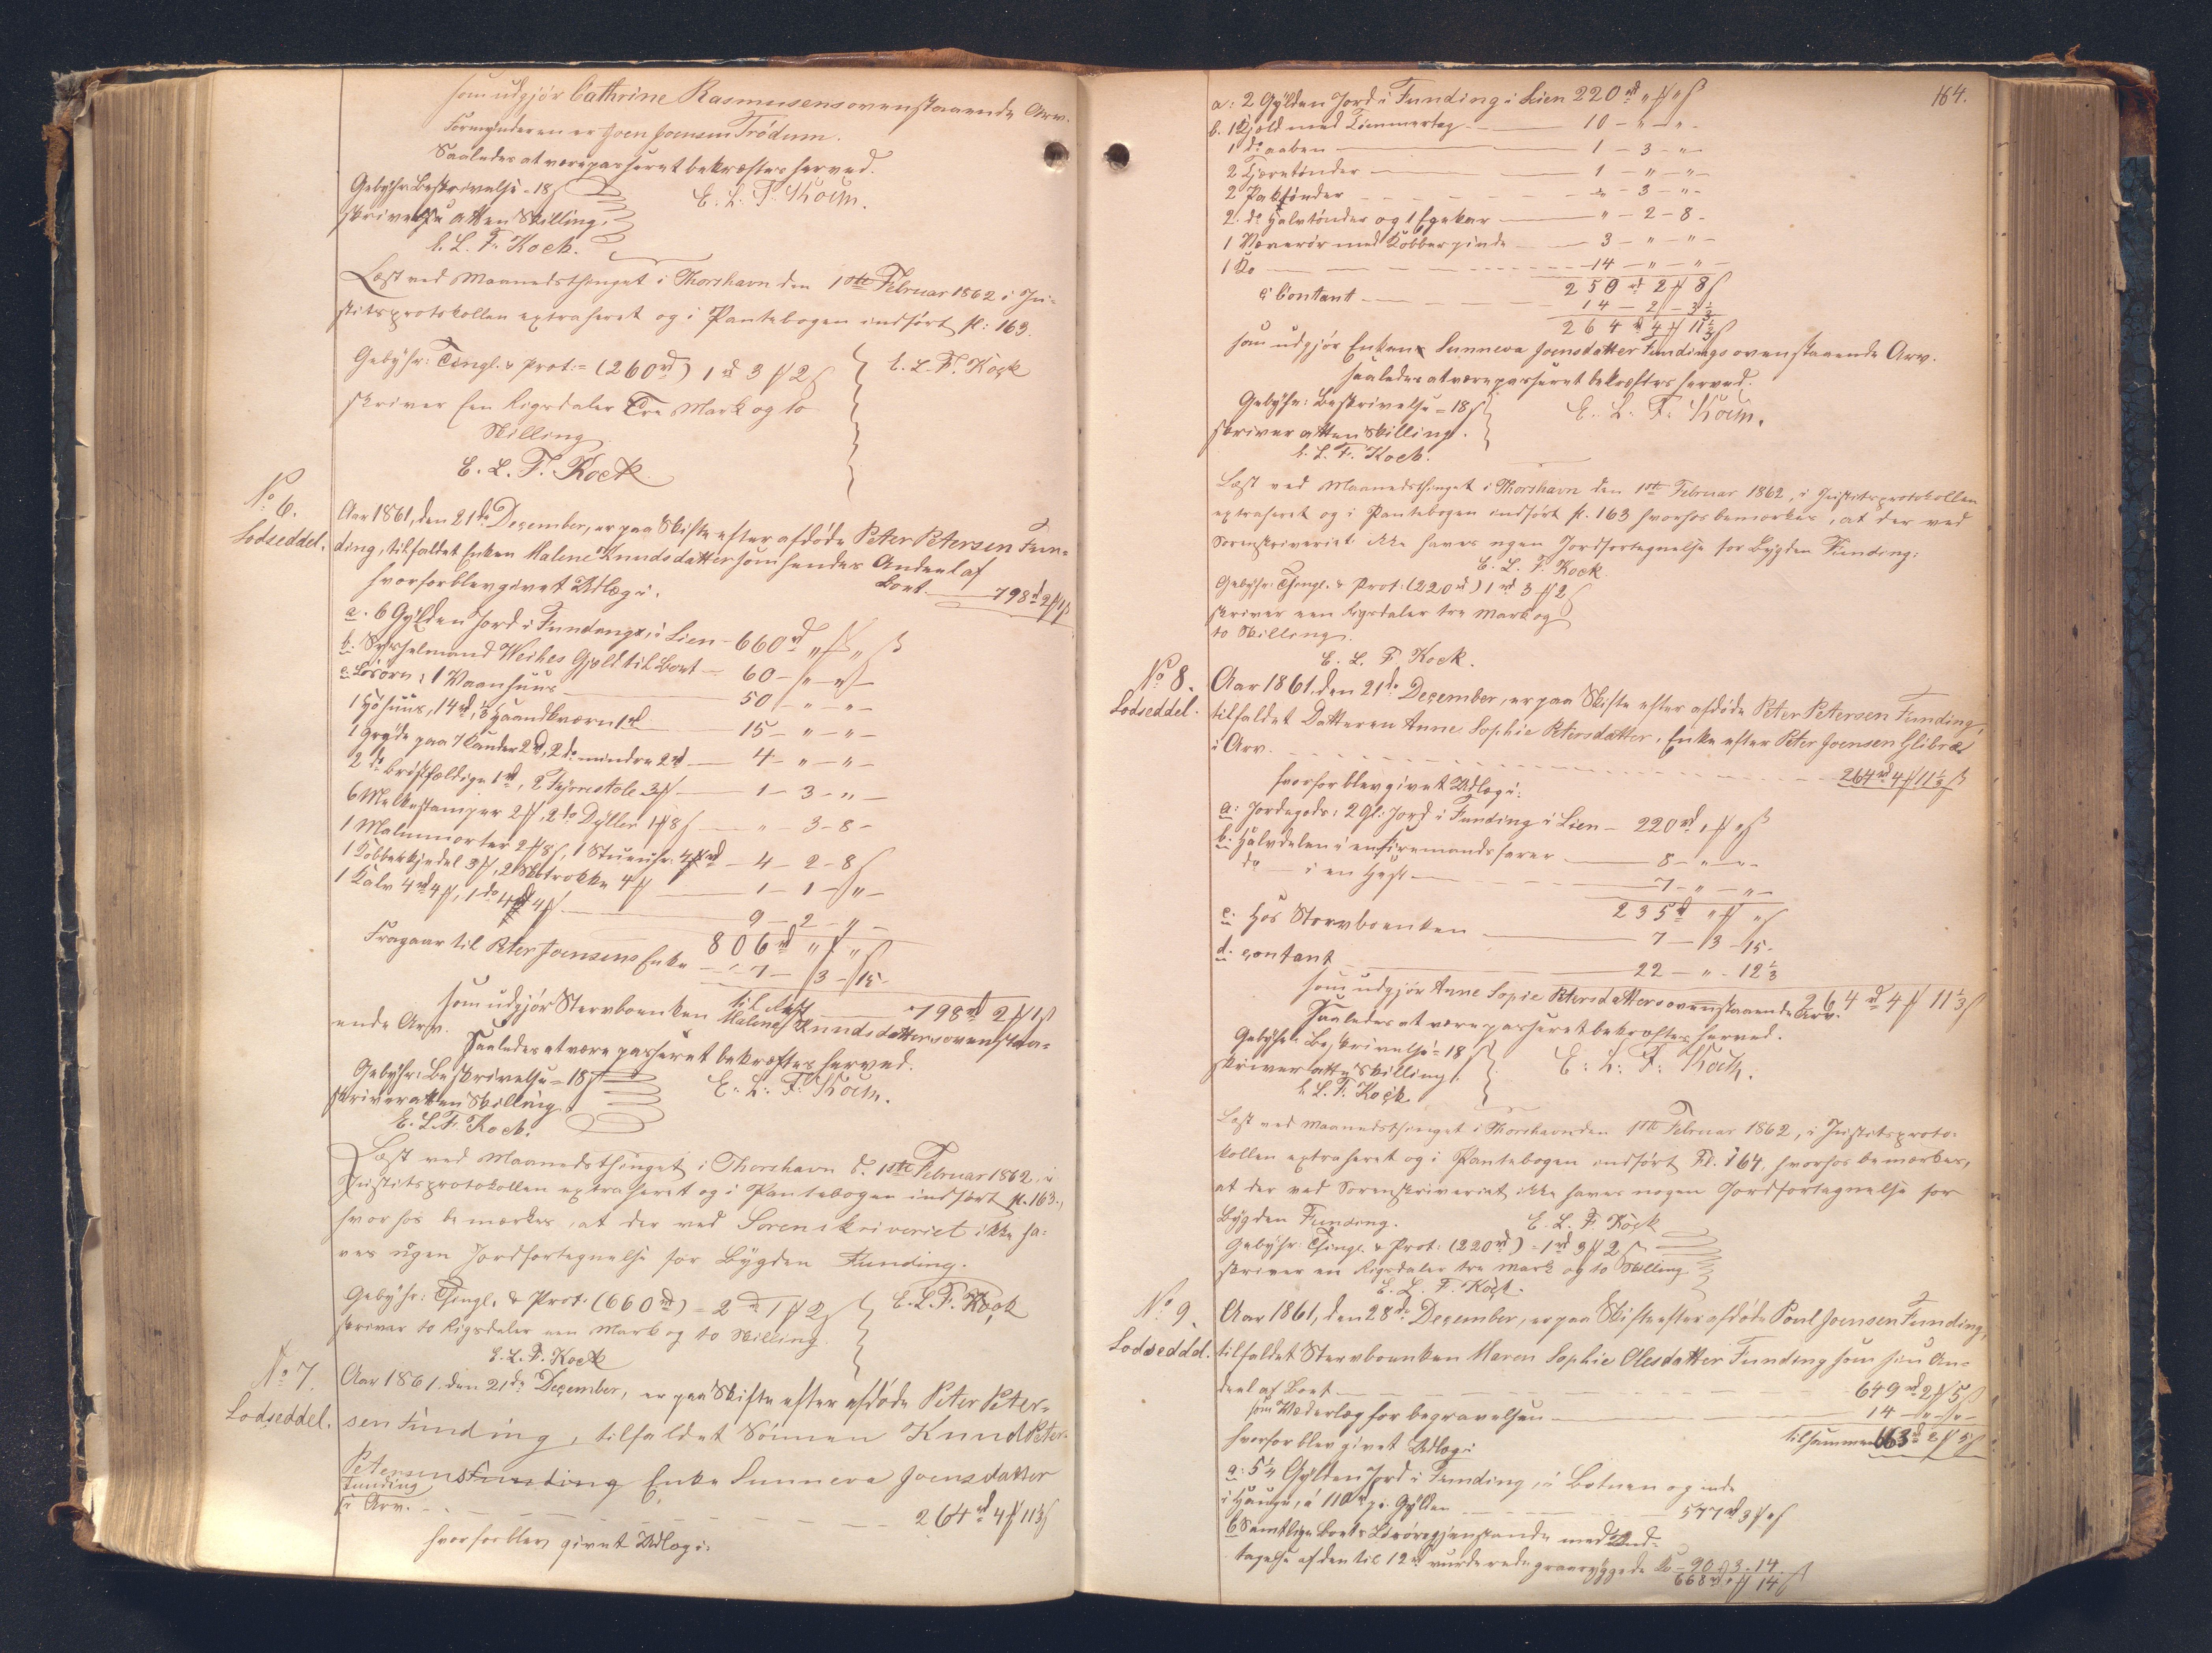 som udgjør Cathrine Rasmussens ovenstaaende Arv.
Formynderen er Joen Joensen Trødum.
Saaledes at være passeret bekræftes herved.
Gebyhr: Beskrivelse = 18 ß
E. L. F. Koch.
skriver atten Skilling.
E. L. F. Koch.
Læst ved Maanedsthinget i Thorshavn den 1ste Februar 1862 i Ju-
stitsprotokollen extraheret og i Pantebogen indført fl: 163.
Gebyhr: Tingl. & Prot:= (260 rd) 1 rd 3 ꝳ 2 ß
E. L. F. Koch
skriver Een Rigsdaler Tre Mark og to
Skilling
E. L. F. Koch
No 6.
Lodseddel.
Aar 1861, den 21de Dezember, er paa Skifte efter afdøde Peter Petersen Fun-
ding, tilfaldet Enken Malene Knudsdatter som hendes Andeel af
Boet 798 rd 2 ꝳ 1 ß
hvorfor blev givet Udlæg i:
a. 6 Gylden Jord i Fundinge, i Lien - 660 rd „ ꝳ „ ß
b. Sysselmand Weihes Gjæld til Boet - 60 - „ - „ -
c. Løsøre: 1 Vaanhuus 50 - „ - „ -
1 Høhuus, 14 rd, 1/3 Haandkværn 1 rd 15 - „ - „ -
1 Gryde paa 7 Kander 2 rd, 2 do mindre 2 rd 4 - „ - „ -
2 do brøstfældige 1 rd, 2 Fyrrestole 3 ꝳ 1 - 3 - „ -
6 Melkestamper 2 ꝳ, 2 do Dyller 1 ꝳ 8 ß „ - 3 - 8 -
1 Malmmorter 2 ꝳ 8 ß, 1 Stueuhr 4 rd 4 - 2 - 8
1 Kobberkjedel 3 ꝳ, 2 Slobrokke 4 ꝳ 1 - 1 - „ -
1 Kalv 4 rd 4 ꝳ, 1 do 4 rd 4 ꝳ 9 - 2 - „ -
806 rd „ ꝳ „ ß
Fragaar til Peter Joensens Enke 7 - 3 - 15 -
til Rest 798 rd 2 ꝳ 1 ß
som udgjør Stervboenken Malene Knudsdatters ovenstaa-
ende Arv.
Saaledes at være passeret bekræftes herved.
Gebyhr: Beskrivelse = 18 ß
E. L. F. Koch.
skriver atten Skilling
E. L. F. Koch.
Læst ved Maanedsthinget i Thorshavn d. 1ste Februar 1862, i
Justitsprotokollen extraheret og i Pantebogen indført fl. 163.,
hvorhos bemærkes, at der ved Sorenskriveriet ikke ha-
ves ngen Jordfortegnelse for Bygden Funding.
Gebyhr: Thingl. & Prot: (660 rd) = 2 rd 1 ꝳ 2 ß
E. L. F. Koch
skriver to Rigsdaler een Mark og to Skilling.
E. L. F. Koch
No 7.
Lodseddel.
Aar 1861. den 21de Dezember, er paa Skifte efter afdøde Peter Peter-
sen Funding, tilfaldet Sønnen Knud Peter-
Petersens Funding Enke Sunneva Joensdatter
Funding
i Arv. 264 rd 4 ꝳ 11 1/3 ß
hvorfor blev givet Udlæg i:
164.
a: 2 Gylden Jord i Funding i Lien 220 rd „ ꝳ „ ß
b. 1 Kjold med Tømmertag 10 - „ - „ -
1 do aaben 1 - 3 - „ -
2 Tjæretønder 1 - „ - „ -
2 Paktønder „ - 3 - „ -
2 do Halvtønder og 1 Egekar „ - 2 - 8 -
1 Næverør med Kobberpinde 3 - „ - „ -
1 Ko 14 - „ - „ -
250 rd 2 ꝳ 8 ß
c: Contant 14 - 2 - 3 1/3
264 rd 4 ꝳ 11 1/3 ß
som udgjør Enken Sunneva Joensdatter Fundings ovenstaaende Arv.
saaledes at være passeret bekræftes herved.
Gebyhr: Beskrivelse = 18 ß
E. L. F. Koch.
skriver atten Skilling.
E. L. F. Koch.
Læst ved Maanedsthinget i Thorshavn den 1ste Februar 1862, i Justitsprotokollen
extraheret og i Pantebogen indført fl. 163 hvorhos bemærkes, at der ved
Sorenskriveriet ikke haves ngen Jordfortegnelse for Bygden Funding:
E. L. F. Koch
Gebyhr: Thingl. & Prot: (220 rd) 1 rd 3 ꝳ 2 ß
skriver een Rigsdaler tre Mark og
to Skilling.
E. L. F. Koch.
No 8.
Lodseddel.
Aar 1861, den 21de Dezember, er paa Skifte efter afdøde Peter Petersen Funding,
tilfaldet Datteren Anne Sophie Petersdatter, Enke efter Peter Joensen Glibræ
i Arv. 264 rd 4 ꝳ 11 1/3 ß
hvorfor blev givet Udlæg i:
a: Jordegods: 2 Gl: Jord i Funding i Lien - 220 rd „ ꝳ „ ß
b. Halvdelen i en Firemandsfarer 8 - „ - „ -
do i en Hest 7 - „ - „ -
235 rd „ ꝳ „ ß
c: Hos Stervboenken 7 - 3 - 15 -
d: contant 22 - „ - 12 1/3
264 rd 4 ꝳ 11 1/3 ß
som udgjør Anne Sopie Petersdatters ovenstaaende Arv.
Saaledes at være passeret bekræftes herved.
Gebyhr: Beskrivelse = 18 ß
E. L. F. Koch.
skriver atten Skilling.
E. L. F. Koch
Læst ved Maanedsthinget i Thorshavn den 1ste Februar 1862, i Justitsproto-
kollen extraheret og i Pantebogen indført Fl. 164. hvorhos bemærkes,
at der ved Sorenskriveriet ikke haves nogen Jordfortegnelse for
Bygden Funding.
E. L. F. Koch
Gebyhr: Thingl. & Prot: (220 rd) = 1 rd 3 ꝳ 2 ß
skriver en Rigsdaler tre Mark og to Skilling.
E. L. F. Koch.
No 9.
Lodseddel.
Aar 1861, den 28de Dezember, er paa Skifte efter afdøde Poul Joensen Funding,
tilfaldet Stervboenken Maren Sophie Olesdatter Funding som sin An-
deel af Boet 649 rd 2 ꝳ 5 ß
som Vederlag for begravelsen 14 - „ - „ -
tilsammen 663 rd 2 ꝳ 5 ß
hvorfor blev givet Udlæg i
a: 5 1/4 Gylden Jord i Funding, i Botnen og inde
i Hauge, á 110 rd pr. Gylden 577 rd 3 ꝳ „ ß
b Samtlige Boets Løsøregjenstande med Und-
tagelse af den til 12 rd vurderede graaryggede Ko - 90 - 3 - 14
668 rd „ ꝳ 14 ß